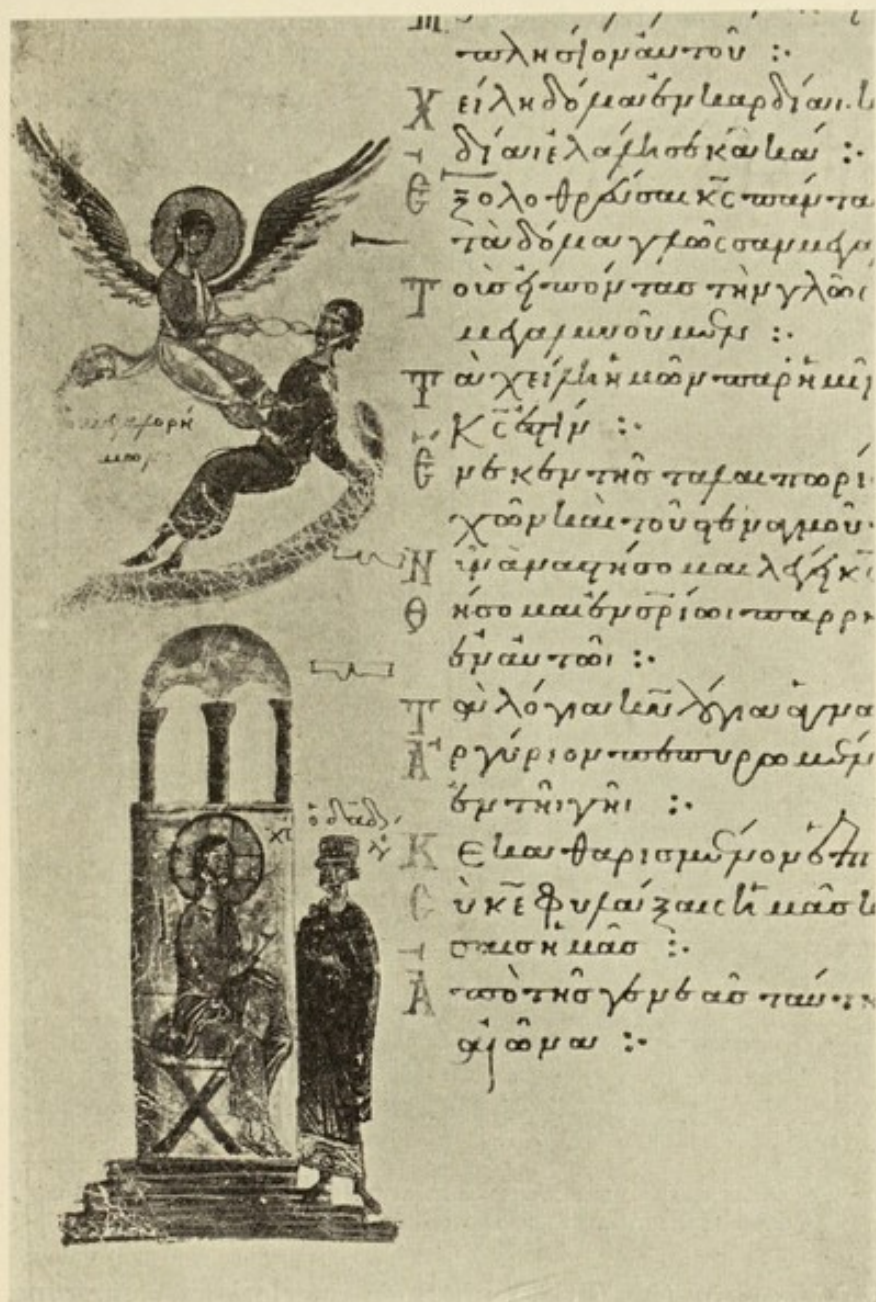 πλησίον αὐτοῦ :·
Χείλη δόλια ἐν καρδίαι·
δίαι ἐλάλησε κακά :·
Ἐξολοθρεύσαι κς πάντα
τὰ δόλια γλῶσσαν μεγα
Τοὺς εἰπόντας τὴν γλῶσ
μεγαλυνοῦμεν :·
Τὰ χείλη ἡμῶν παρ' ἡμῖ
κς ἐστίν :·
Ἕνεκεν τῆς ταλαιπωρί
χῶν καὶ τοῦ στεναγμοῦ·
Νῦν ἀναστήσομαι λέγει κς
Θήσομαι ἐν σρίωι παρρη
ἐν αὐτῶι :·
Τὰ λόγια κυ λόγια ἁγνα
Ἀργύριον πεπυρωμέν
ἐν τῆι γῆι :·
Κεκαθαρισμένον ἑπτ
Σὺ κε φυλάξαις ἡμᾶς κ
σαις ἡμᾶς :·
Ἀπὸ τῆς γενεᾶς ταύτη
αἰῶνα :·
ὁ δαδ